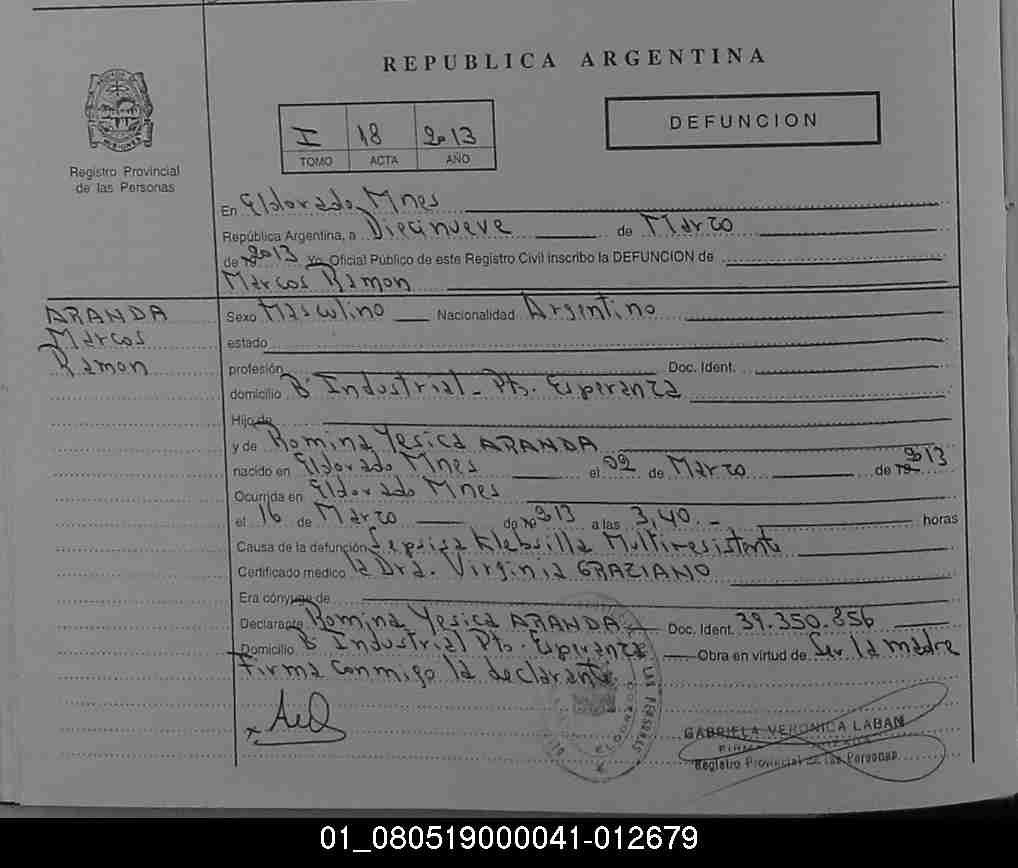 REPUBLICA ARGENTINA
I 18 2013
TOMO ACTA AÑO
DEFUNCION
Registro Provincial
de las Personas
En Eldorado Mnes
República Argentina, a Diecinueve de Marzo
de 2013 yo, Oficial Público de este Registro Civil inscribo la DEFUNCION de
Marcos Ramon
ARANDA
Marcos
Ramon
Sexo Masculino Nacionalidad Argentino
estado
profesión Doc. Ident.
domicilio Bº Industrial - Pto. Esperanza
Hijo de
y de Romina Yesica ARANDA
nacido en Eldorado Mnes el 02 de Marzo de 2013
Ocurrida en Eldorado Mnes
el 16 de Marzo de 2013 a las 3,40.- horas
Causa de la defunción Klebsilla Multirresistente
Certificado médico la Dra. Virginia GRAZIANO
Era cónyuge de
Declarante Romina Yesica ARANDA Doc. Ident. 39.350.856
Domicilio Bº Industrial Pto. Esperanza Obra en virtud de Ser la madre
Firma conmigo la declarante
GABRIELA VERONICA LABAN
Registro Provincial de las Personas
01_080519000041-012679